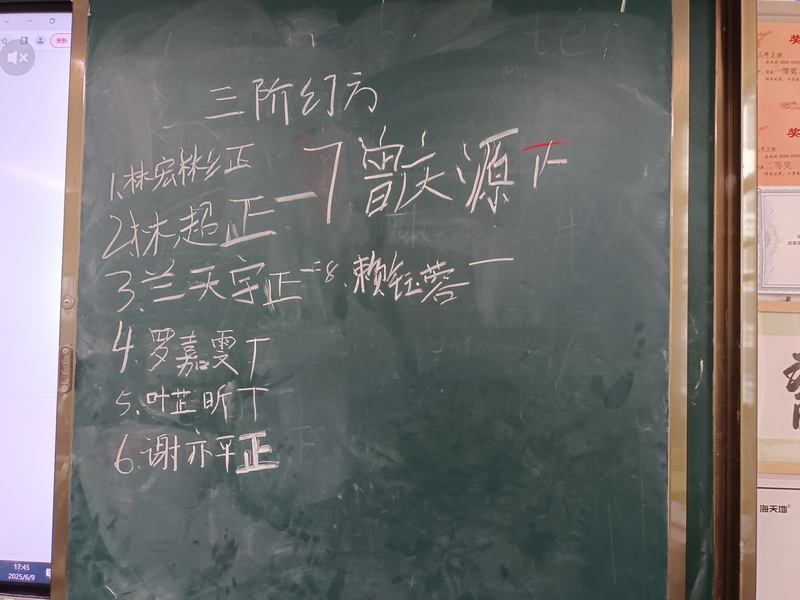 三阶幻方
1.林宏林 正
2.林超 正一
7曾庆源
3.兰天宇正二
8.赖钰蓉 一
4.罗嘉雯 丅
5.叶芷昕 丅
6.谢亦平 正
更新
17:45
2025/6/9
奖
一等奖
奖
二等奖
海天地